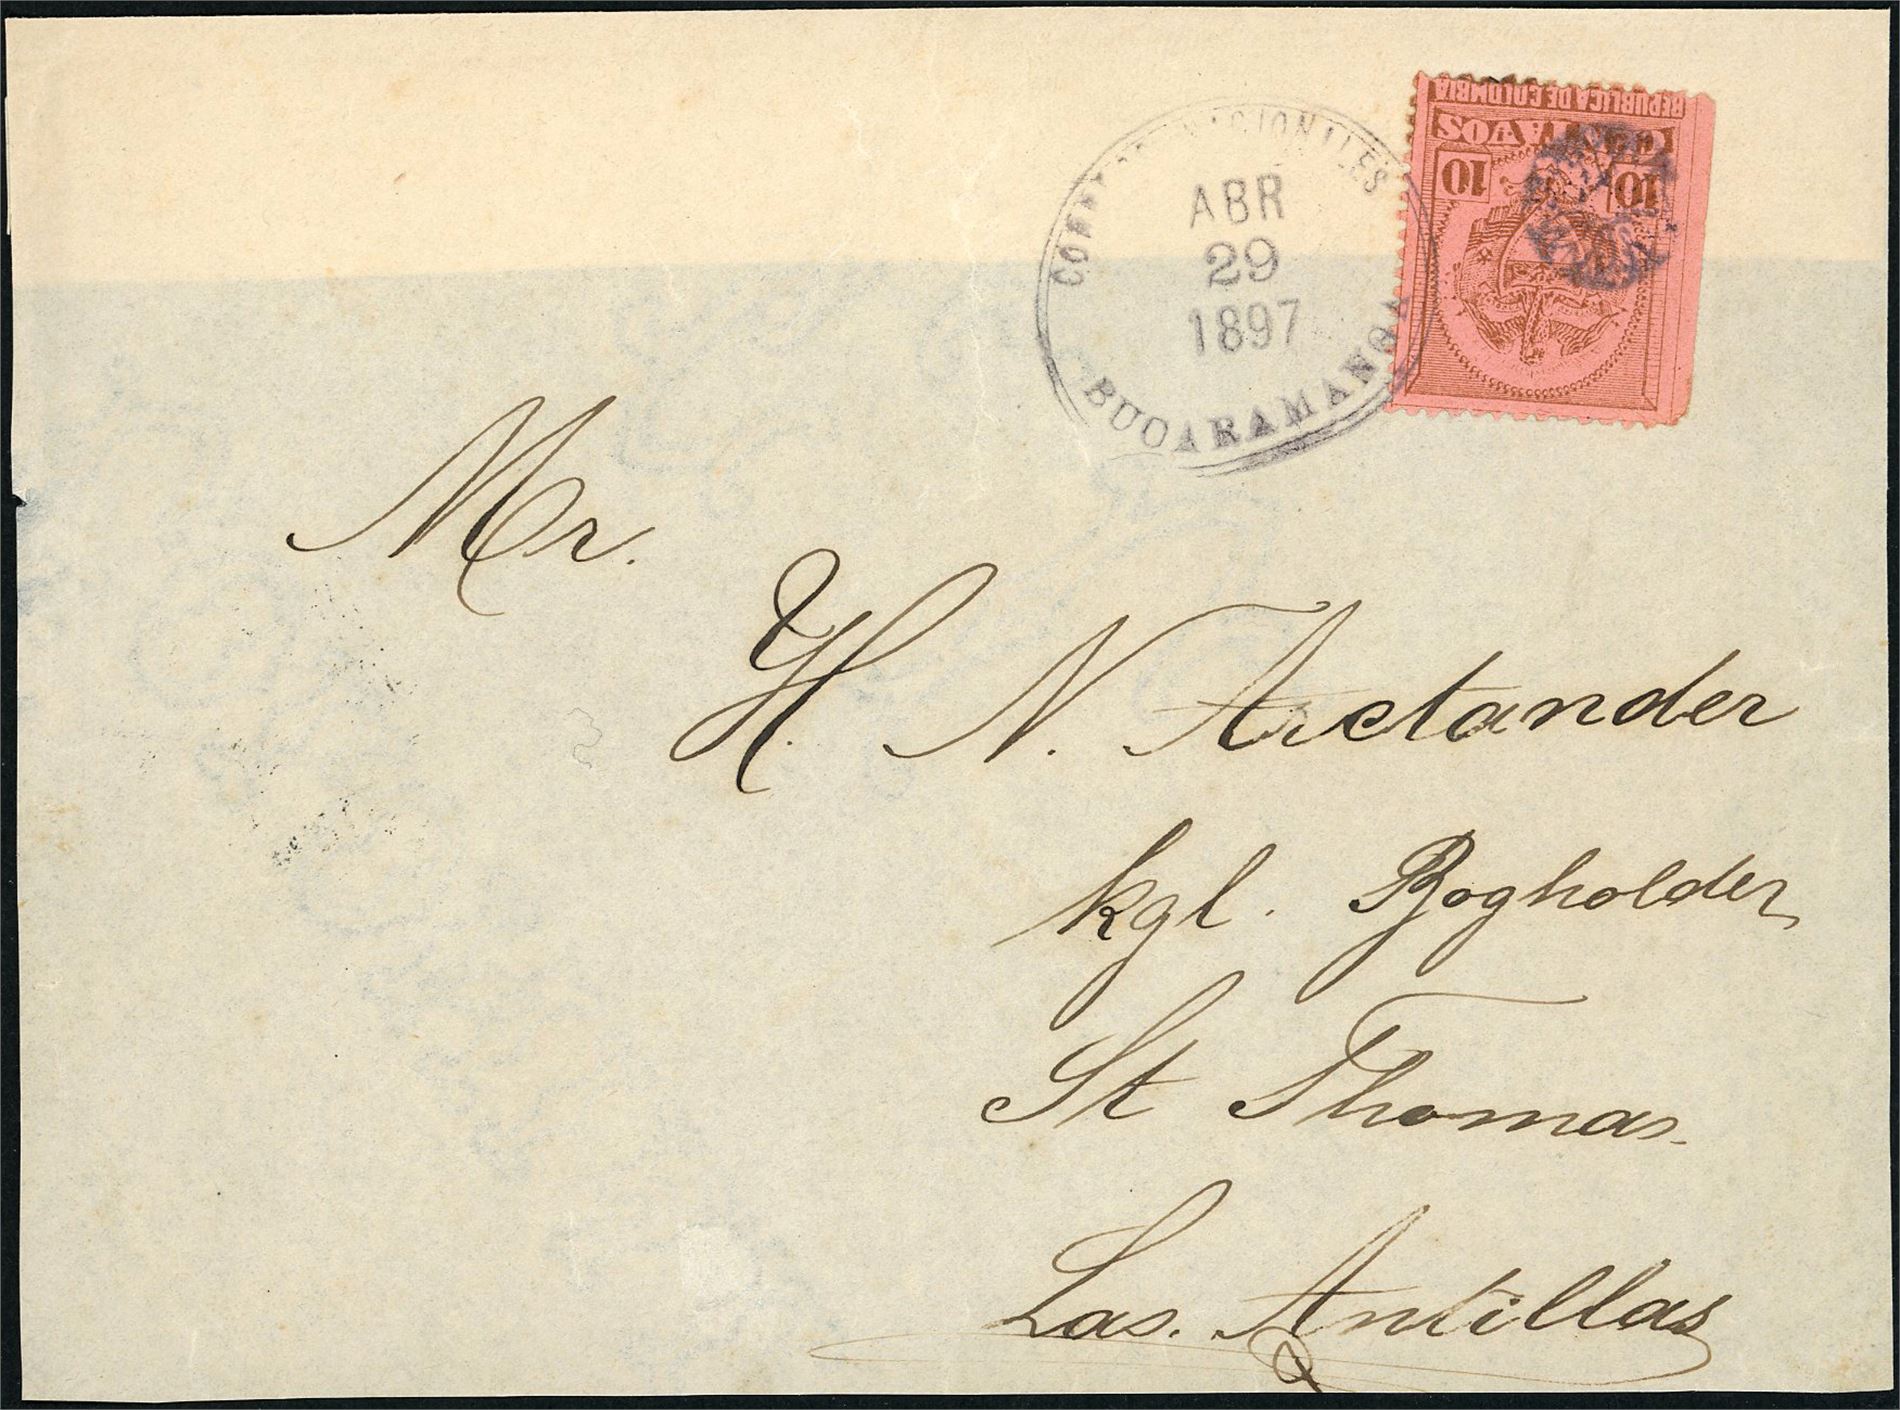 REPUBLICA DE COLOMBIA
CENTAVOS
10 10
CORREOS NACIONALES
ABR
29
1897
BUCARAMANGA
Mr.
H. N. Arctander
kgl. Bogholder,
St Thomas.
Las. Antillas